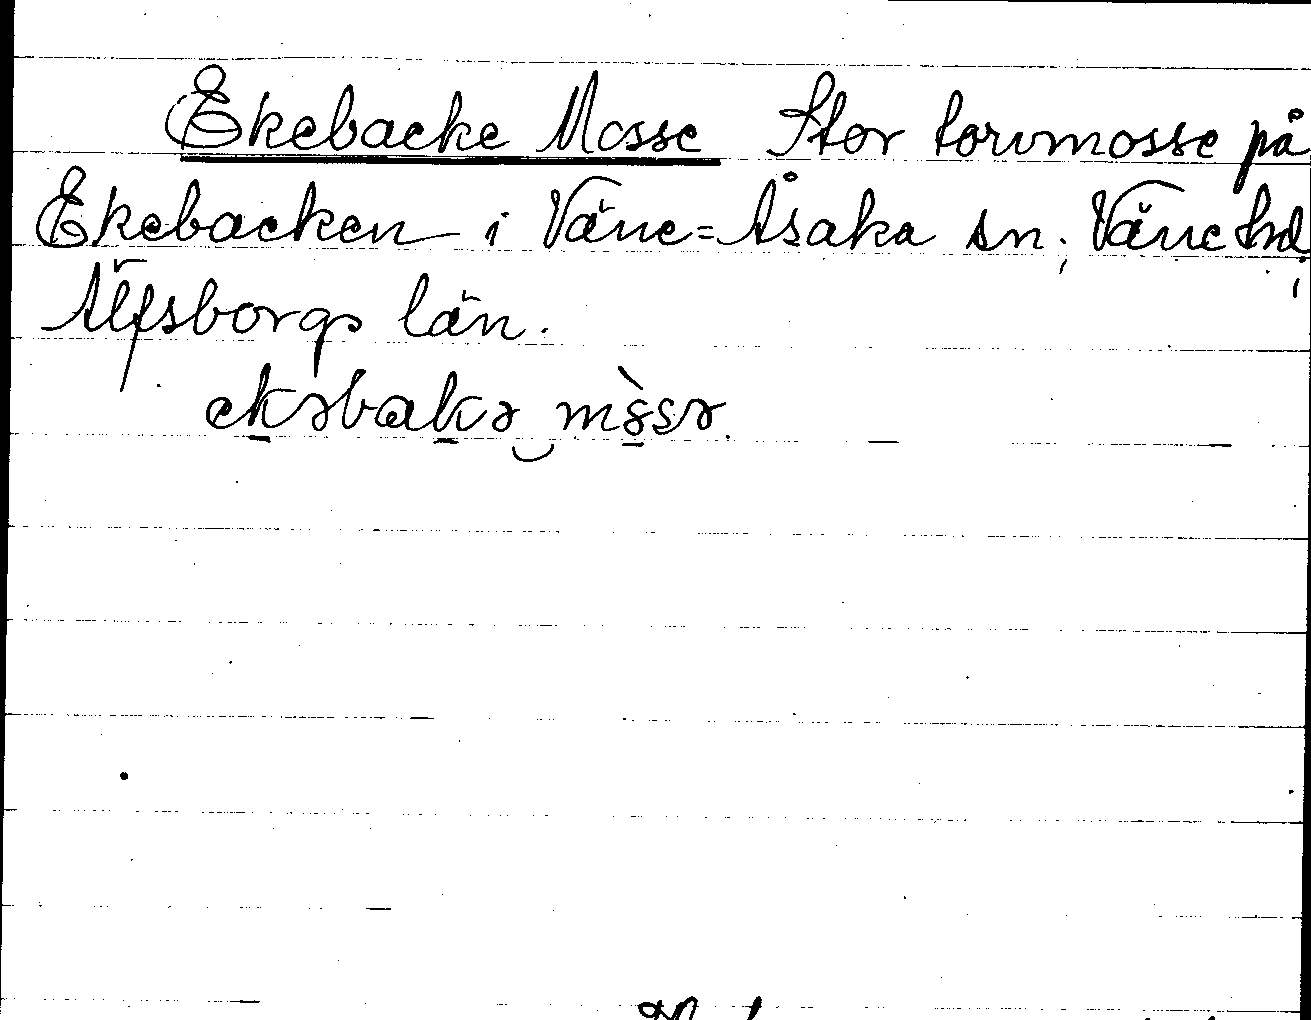 Ekebacke Mosse Stor torvmosse på
Ekebacken i Väne=Åsaka sn; Väne hd;
Älfsborgs län.
ekəbakə mòssə.